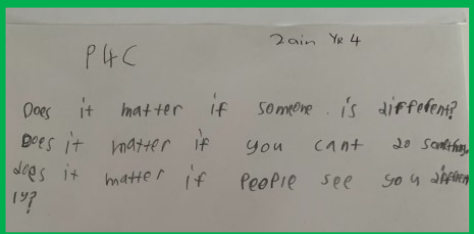 Zain Yr 4
P4C
Does it matter if someone is different?
Does it matter if you cant do something
does it matter if people see you differen
ly?